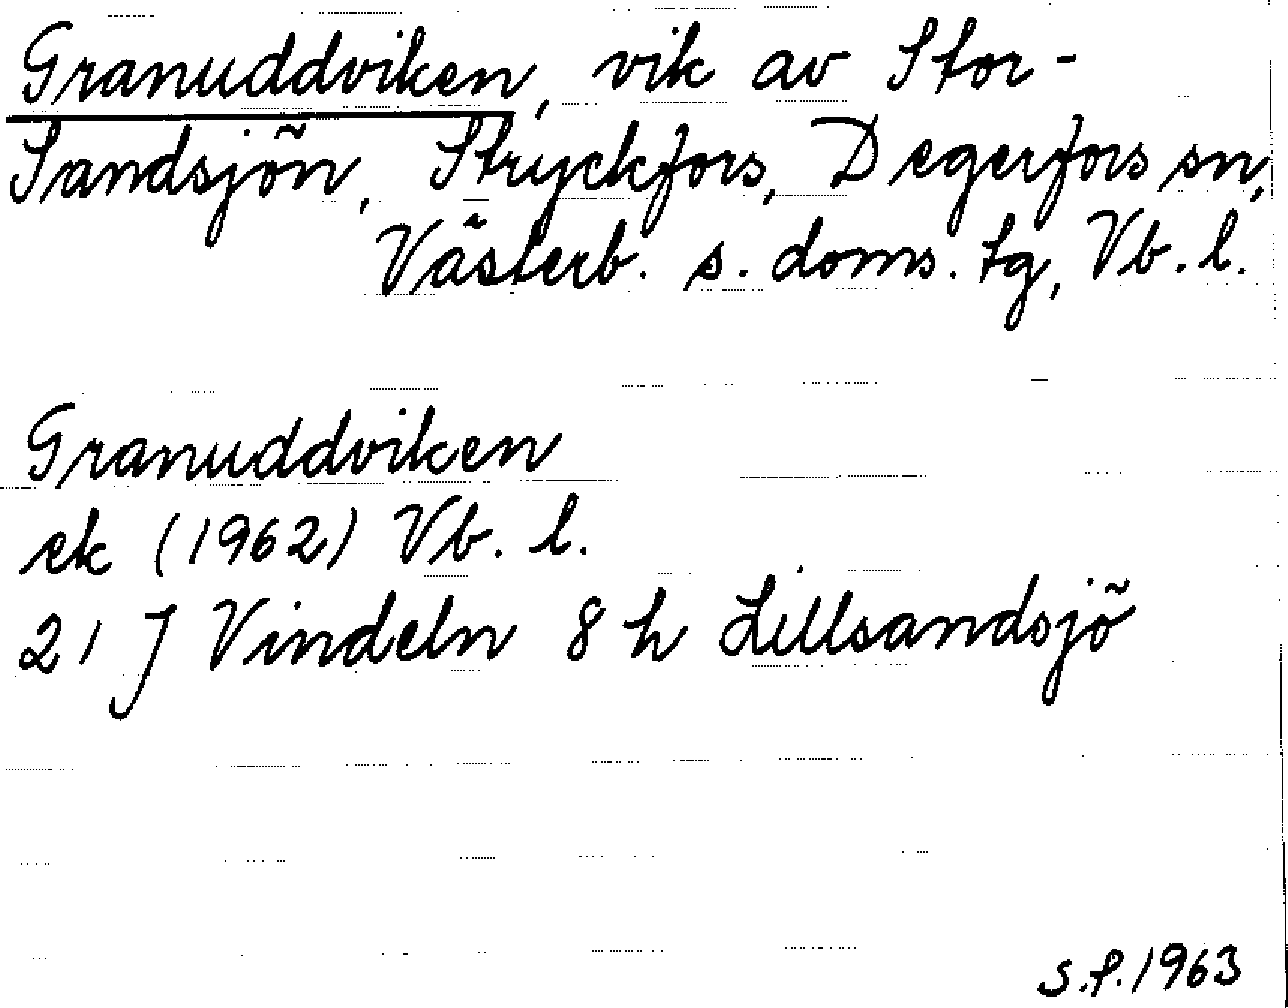 Granuddviken, vik av Stor-
Sandsjön, Stryckfors, Degerfors sn,
Västerb. s. doms. tg, Vb. l.
Granuddviken
ek (1962) Vb. l.
21 J Vindeln 8 h Lillsandsjö
S.f. 1963